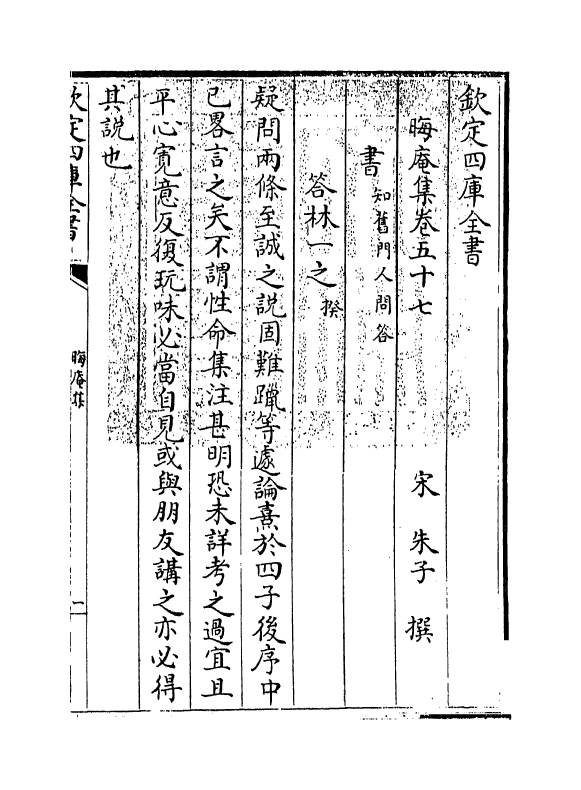 欽定四庫全書
晦庵集卷五十七　宋　朱子　撰
書知舊門人問答
答林一之揆
疑問兩條至誠之說固難躐等遽論熹於四子後序中
已畧言之矣不謂性命集注甚明恐未詳考之過宜且
平心寛意反復玩味必當自見或與朋友講之亦必得
其說也
欽定四庫全書
晦庵集
一